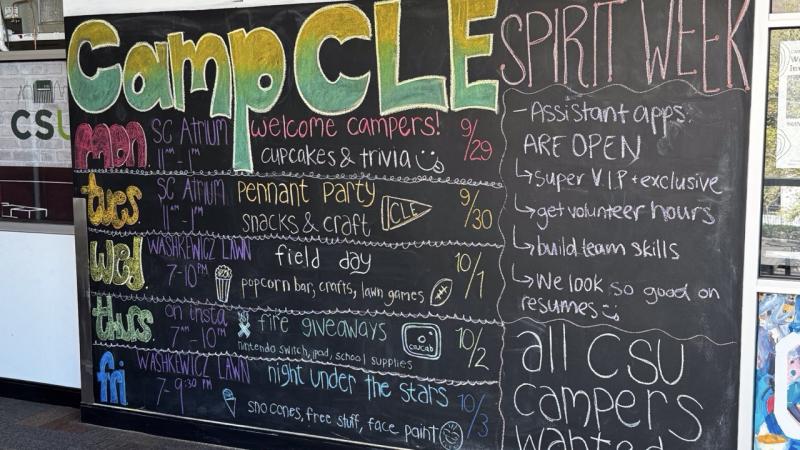 CSU
Camp CLE SPIRIT WEEK
mon. SC ATRIUM 11AM-1PM welcome campers! 9/29
cupcakes & trivia
tues SC ATRIUM 11AM-1PM pennant party 9/30
snacks & craft CLE
wed. WASHKEWICZ LAWN 7-10PM field day 10/1
popcorn bar, crafts, lawn games
thurs on insta 7AM-10PM fire giveaways 10/2
nintendo switch, ipad, school supplies
csucab
fri WASHKEWICZ LAWN 7-9:30PM night under the stars 10/3
sno cones, free stuff, face paint
- Assistant apps.
ARE OPEN
↳ super V.I.P + exclusive
↳ get volunteer hours
↳ build team skills
↳ We look so good on
resumes
all CSU
campers
wanted